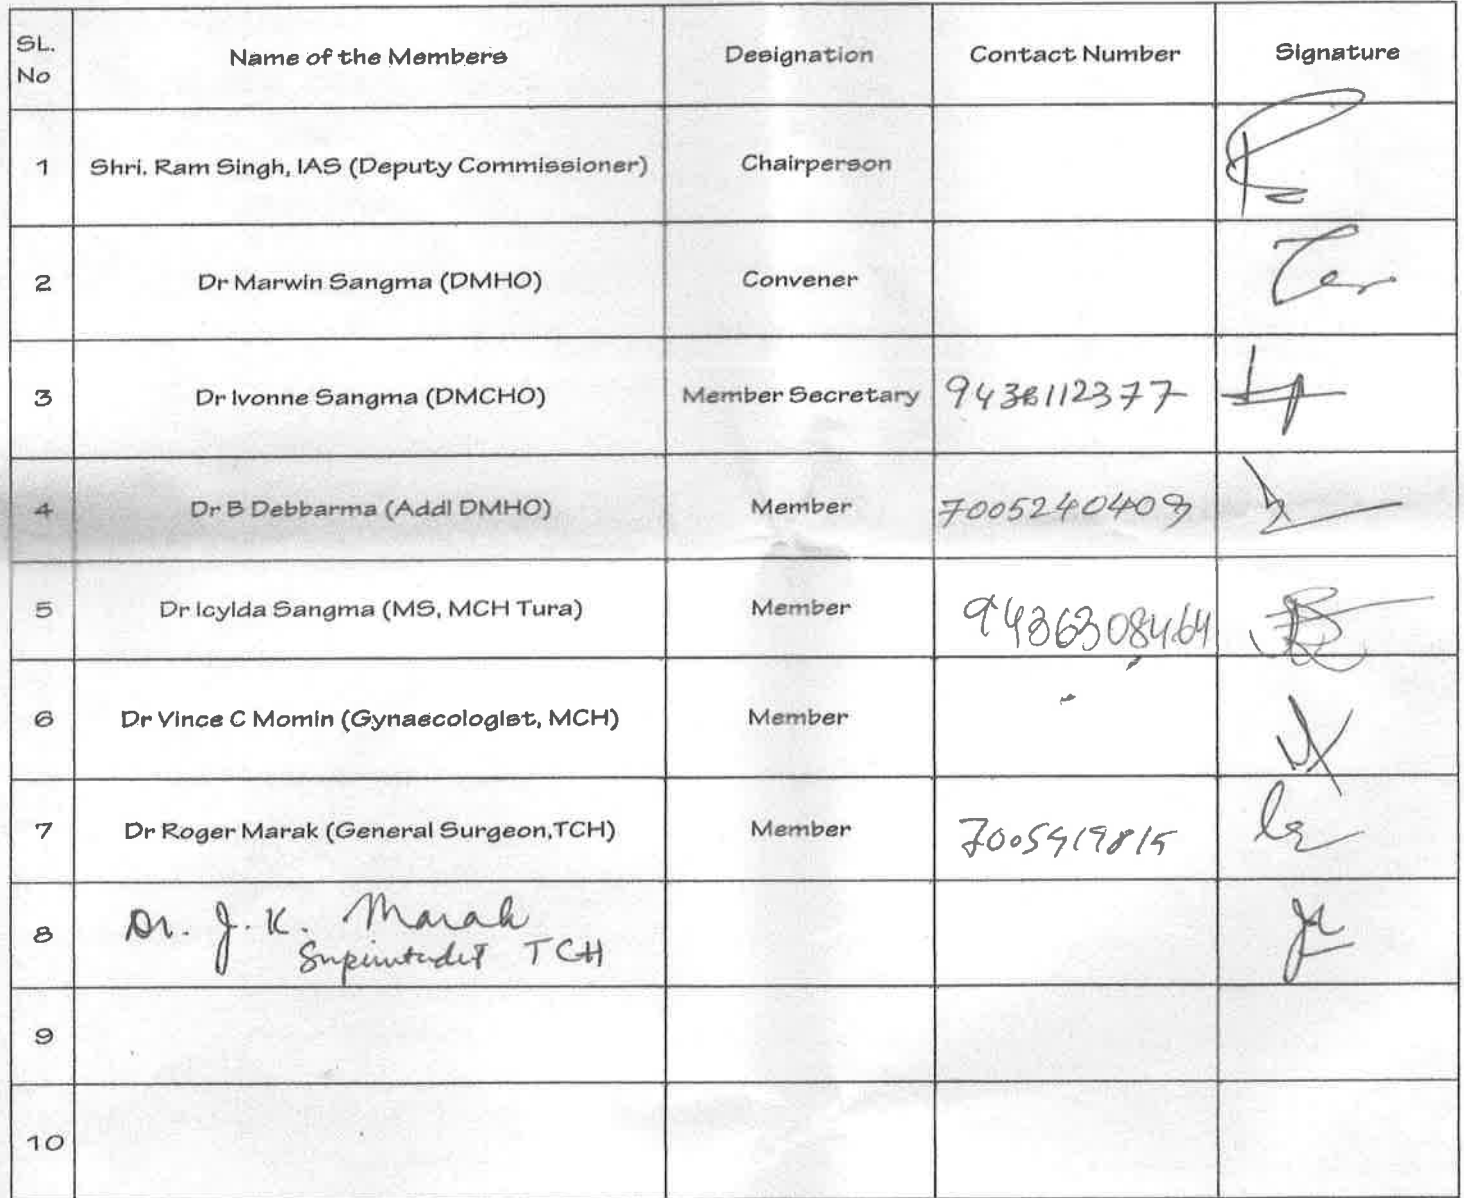 SL. No Name of the Members Designation Contact Number Signature
1 Shri. Ram Singh, IAS (Deputy Commissioner) Chairperson
2 Dr Marwin Sangma (DMHO) Convener
3 Dr Ivonne Sangma (DMCHO) Member Secretary
4 Dr B Debbarma (Addl DMHO) Member 7005240409
5 Dr Icylda Sangma (MS, MCH Tura) Member 9436308464
6 Dr Vince C Momin (Gynaecologist, MCH) Member
7 Dr Roger Marak (General Surgeon,TCH) Member
8 Dr. J. K. Marak
TCH
9
10